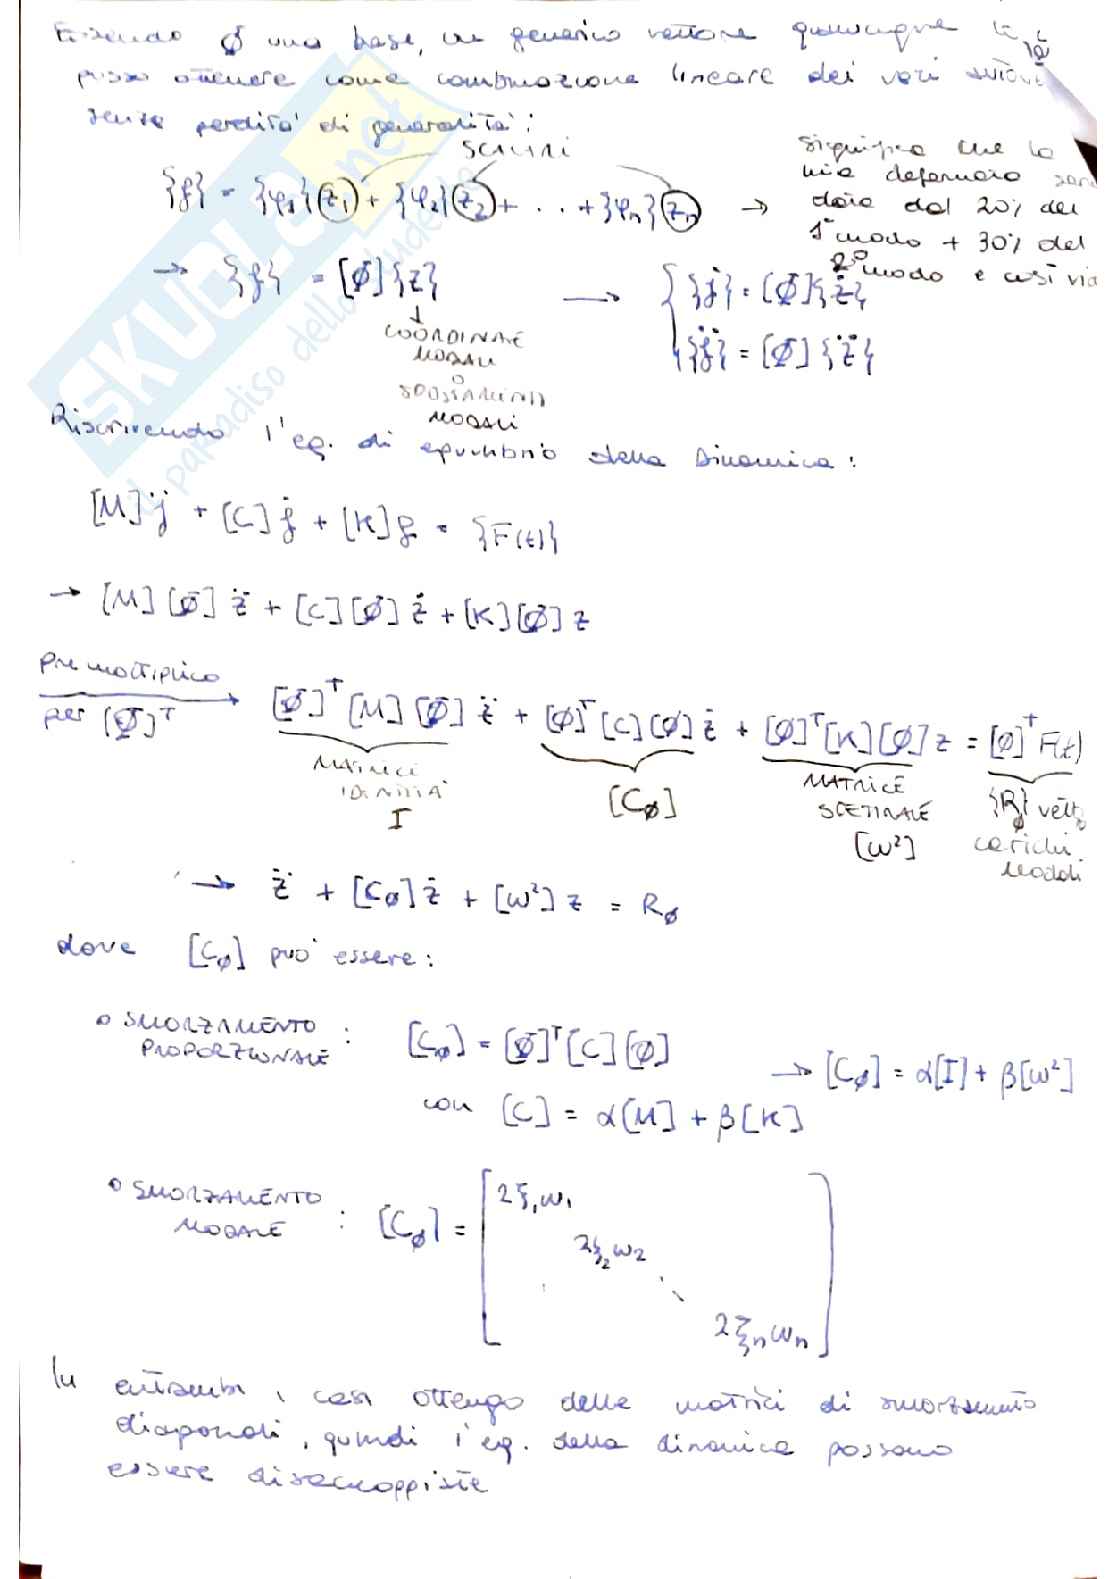 Essendo ϕ una base, un generico vettore qualunque lo
posso ottenere come combinazione lineare dei vari
senza perdita' di generalita':
SCALARI
{f} = {φ1}(z1) + {φ2}(z2) + . . . + {φn}(zn) →
significa che la
mia deformata sarà
data dal 20% del
1° modo + 30% del
2° modo e così via
→ {f} = [Φ]{z} → { {ḟ} = [Φ]{ż}
{f̈} = [Φ]{z̈}
↓
COORDINATE
MODALI
O
SPOSTAMENTI
MODALI
Riscrivendo l'eq. di equilibrio della Dinamica:
[M]f̈ + [C]ḟ + [K]f = {F(t)}
→ [M][Φ]z̈ + [C][Φ]ż + [K][Φ]z
premoltiplico
per [Φ]ᵀ
→ [Φ]ᵀ[M][Φ]z̈ + [Φ]ᵀ[C][Φ]ż + [Φ]ᵀ[K][Φ]z = [Φ]ᵀF(t)
MATRICI
IDENTITA'
I
[Cϕ]
MATRICE
SPETTRALE
[ω²]
{Rϕ} vett.
carichi
modali
→ z̈ + [Cϕ]ż + [ω²]z = Rϕ
dove [Cϕ] può essere:
o SMORZAMENTO
PROPORZIONALE : [Cϕ] = [Φ]ᵀ[C][Φ]
con [C] = α[M] + β[K]
→ [Cϕ] = α[I] + β[ω²]
o SMORZAMENTO
MODALE : [Cϕ] =
[2ξ1ω1
2ξ2ω2
⋱
2ξnωn]
In entrambi i casi ottengo delle matrici di smorzamento
diagonali, quindi l'eq. della dinamica possono
essere disaccoppiate
SKUOLA.net
il paradiso dello studente